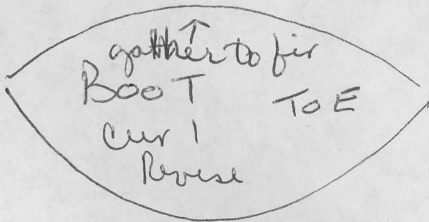 ↑
gather to fix
BOOT TOE
Cur 1
Revise